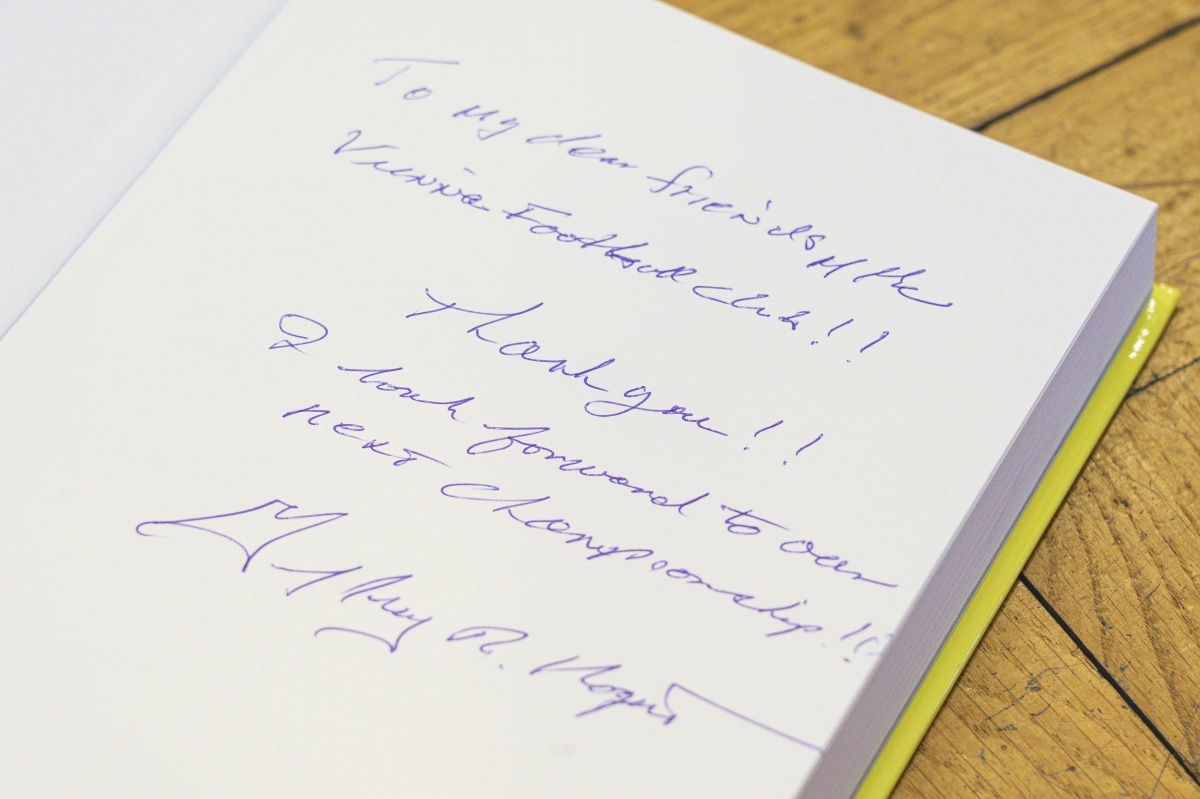 To my dear friends of the
Vienna Football Club!!
Thank you!!
I look forward to our
next championship!!
R.